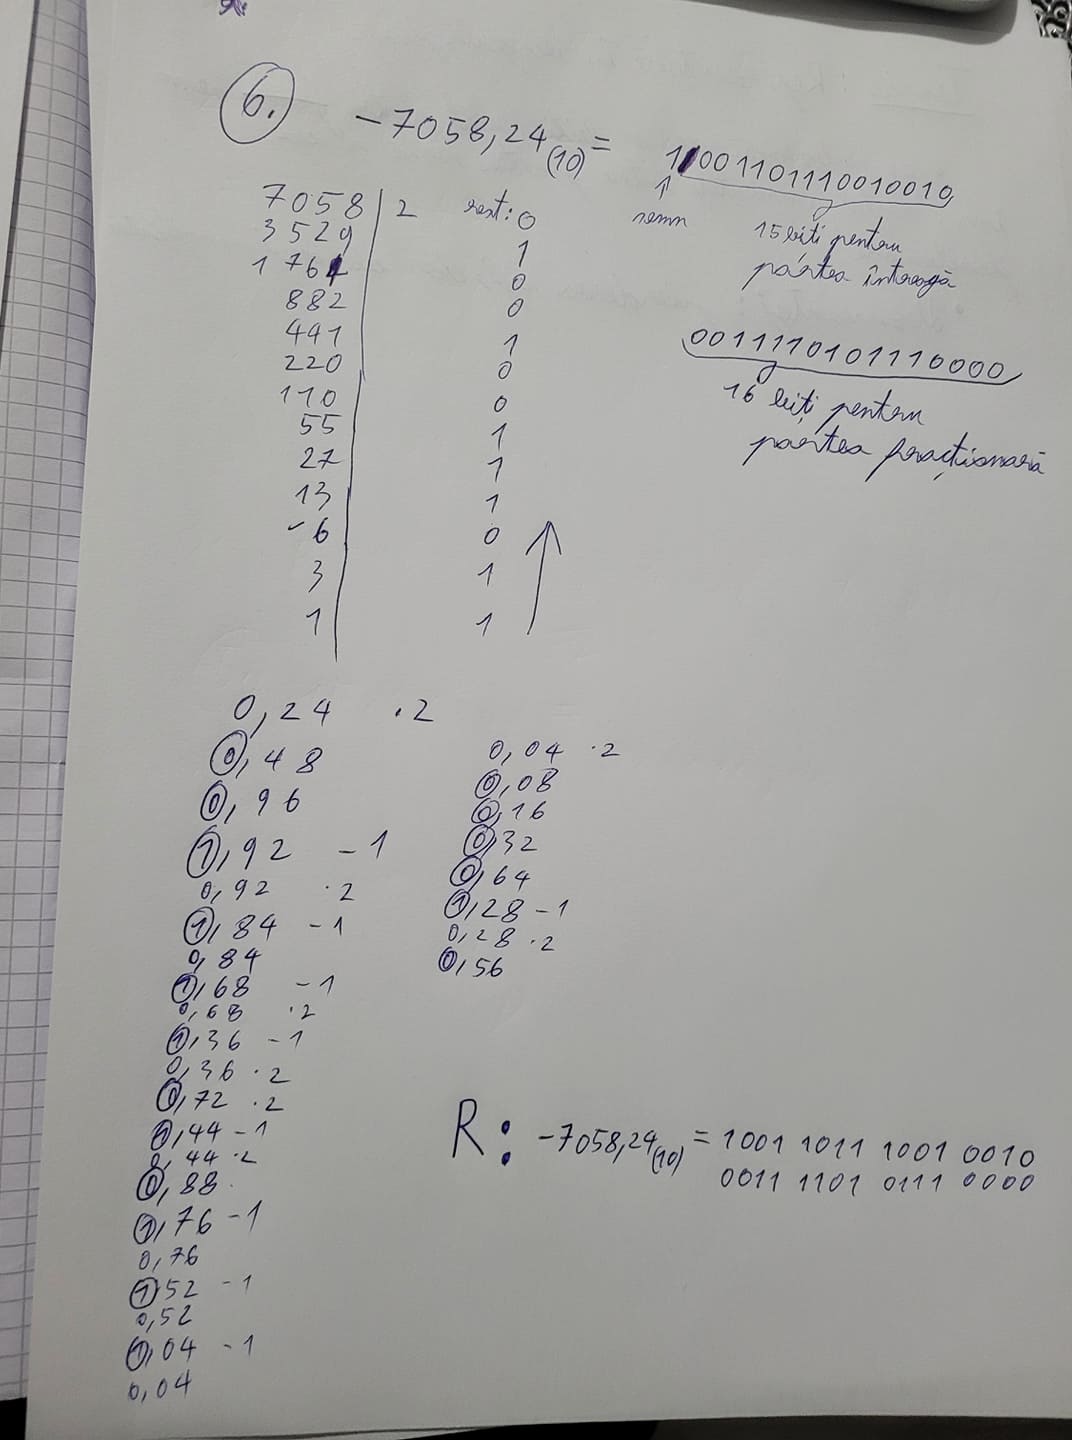 6.
-7058,24(10) = 1001101110010010,
semn
15 biți pentru
partea întreagă
0011110101110000
16 biți pentru
partea fracționară
7058 | 2 rest: 0
3529 1
1764 0
882 0
441 1
220 0
110 0
55 1
27 1
13 1
6 0
3 1
1 1
0,24 ·2
0,48
0,96
1,92 -1
0,92 ·2
1,84 -1
0,84
1,68 -1
0,68 ·2
1,36 -1
0,36 ·2
0,72 ·2
1,44 -1
0,44 ·2
0,88
1,76 -1
0,76
1,52 -1
0,52
1,04 -1
0,04
0,04 ·2
0,08
0,16
0,32
0,64
1,28 -1
0,28 ·2
0,56
R: -7058,24(10) = 1001 1011 1001 0010
0011 1101 0111 0000